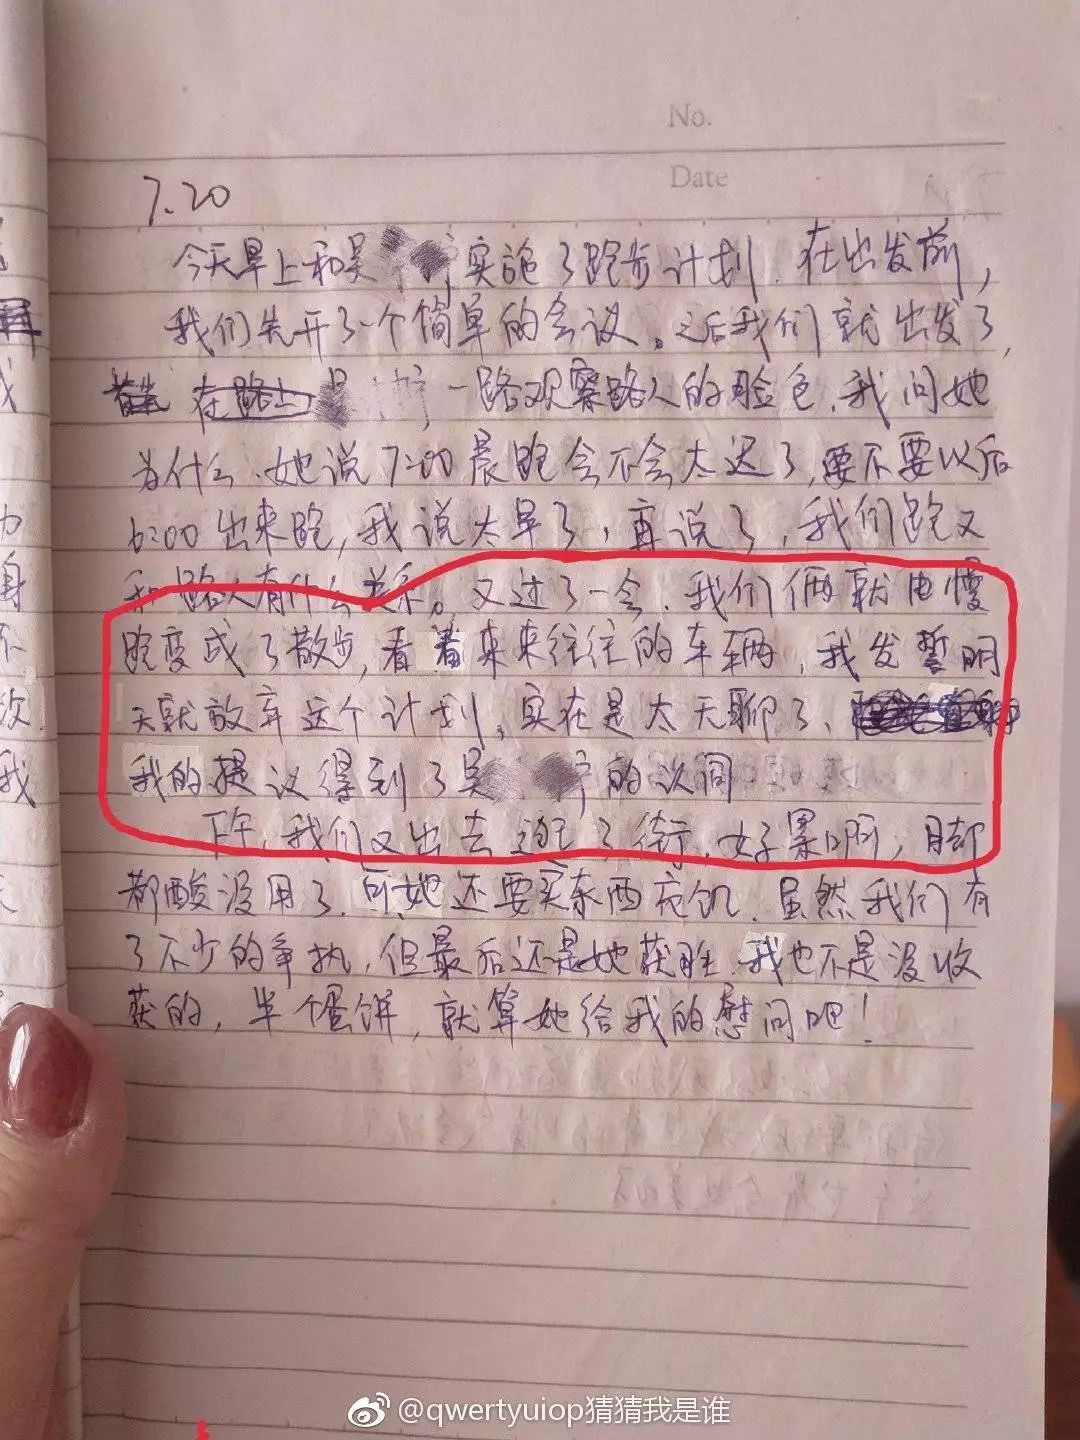 No.
Date
7.20
今天早上和吴 实施了跑步计划.在出发前,
我们先开了一个简单的会议。之后我们就出发了,
一路观察路人的脸色.我问她
为什么.她说7:00晨跑会不会太迟了,要不要以后
6:00出来跑,我说太早了,再说了,我们跑又
和路人有什么关系。又过了一会.我们俩就由慢
跑变成了散步,看着来来往往的车辆,我发誓明
天就放弃这个计划,实在是太无聊了、
我的提议得到了吴 的认同
下午,我们又出去逛了街,好累啊,脚
都酸没用了.可她还要买东西充饥.虽然我们有
了不少的争执,但最后还是她获胜.我也不是没收
获的,半个蛋饼,就算她给我的慰问吧!
@qwertyuiop猜猜我是谁